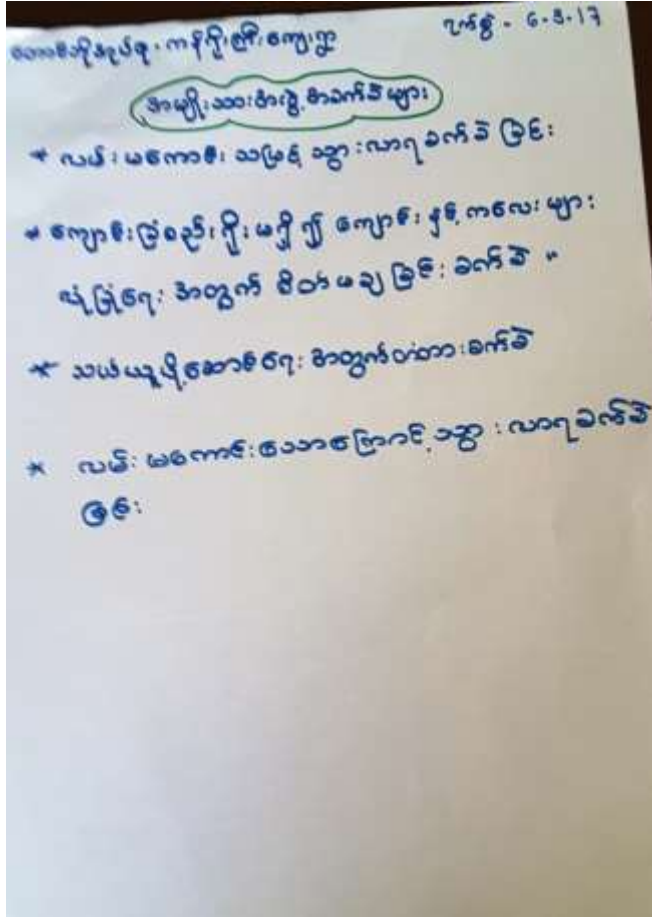 တောင်ဘို့အုပ်စု၊ ကန်ရိုးကြီးကျေးရွာ ရက်စွဲ - 6-3-17
အမျိုးသားအဖွဲ့ အခက်ခဲများ
* လမ်းမကောင်းသဖြင့် သွားလာရခက်ခဲခြင်း
* ကျောင်းခြံစည်းရိုးမရှိ၍ ကျောင်းနှင့်ကလေးများ
လုံခြုံရေးအတွက် စိတ်မချခြင်းခက်ခဲ။
* သယ်ယူပို့ဆောင်ရေးအတွက်တံတားခက်ခဲ
* လမ်းမကောင်းသောကြောင့်သွားလာရခက်ခဲ
ခြင်း